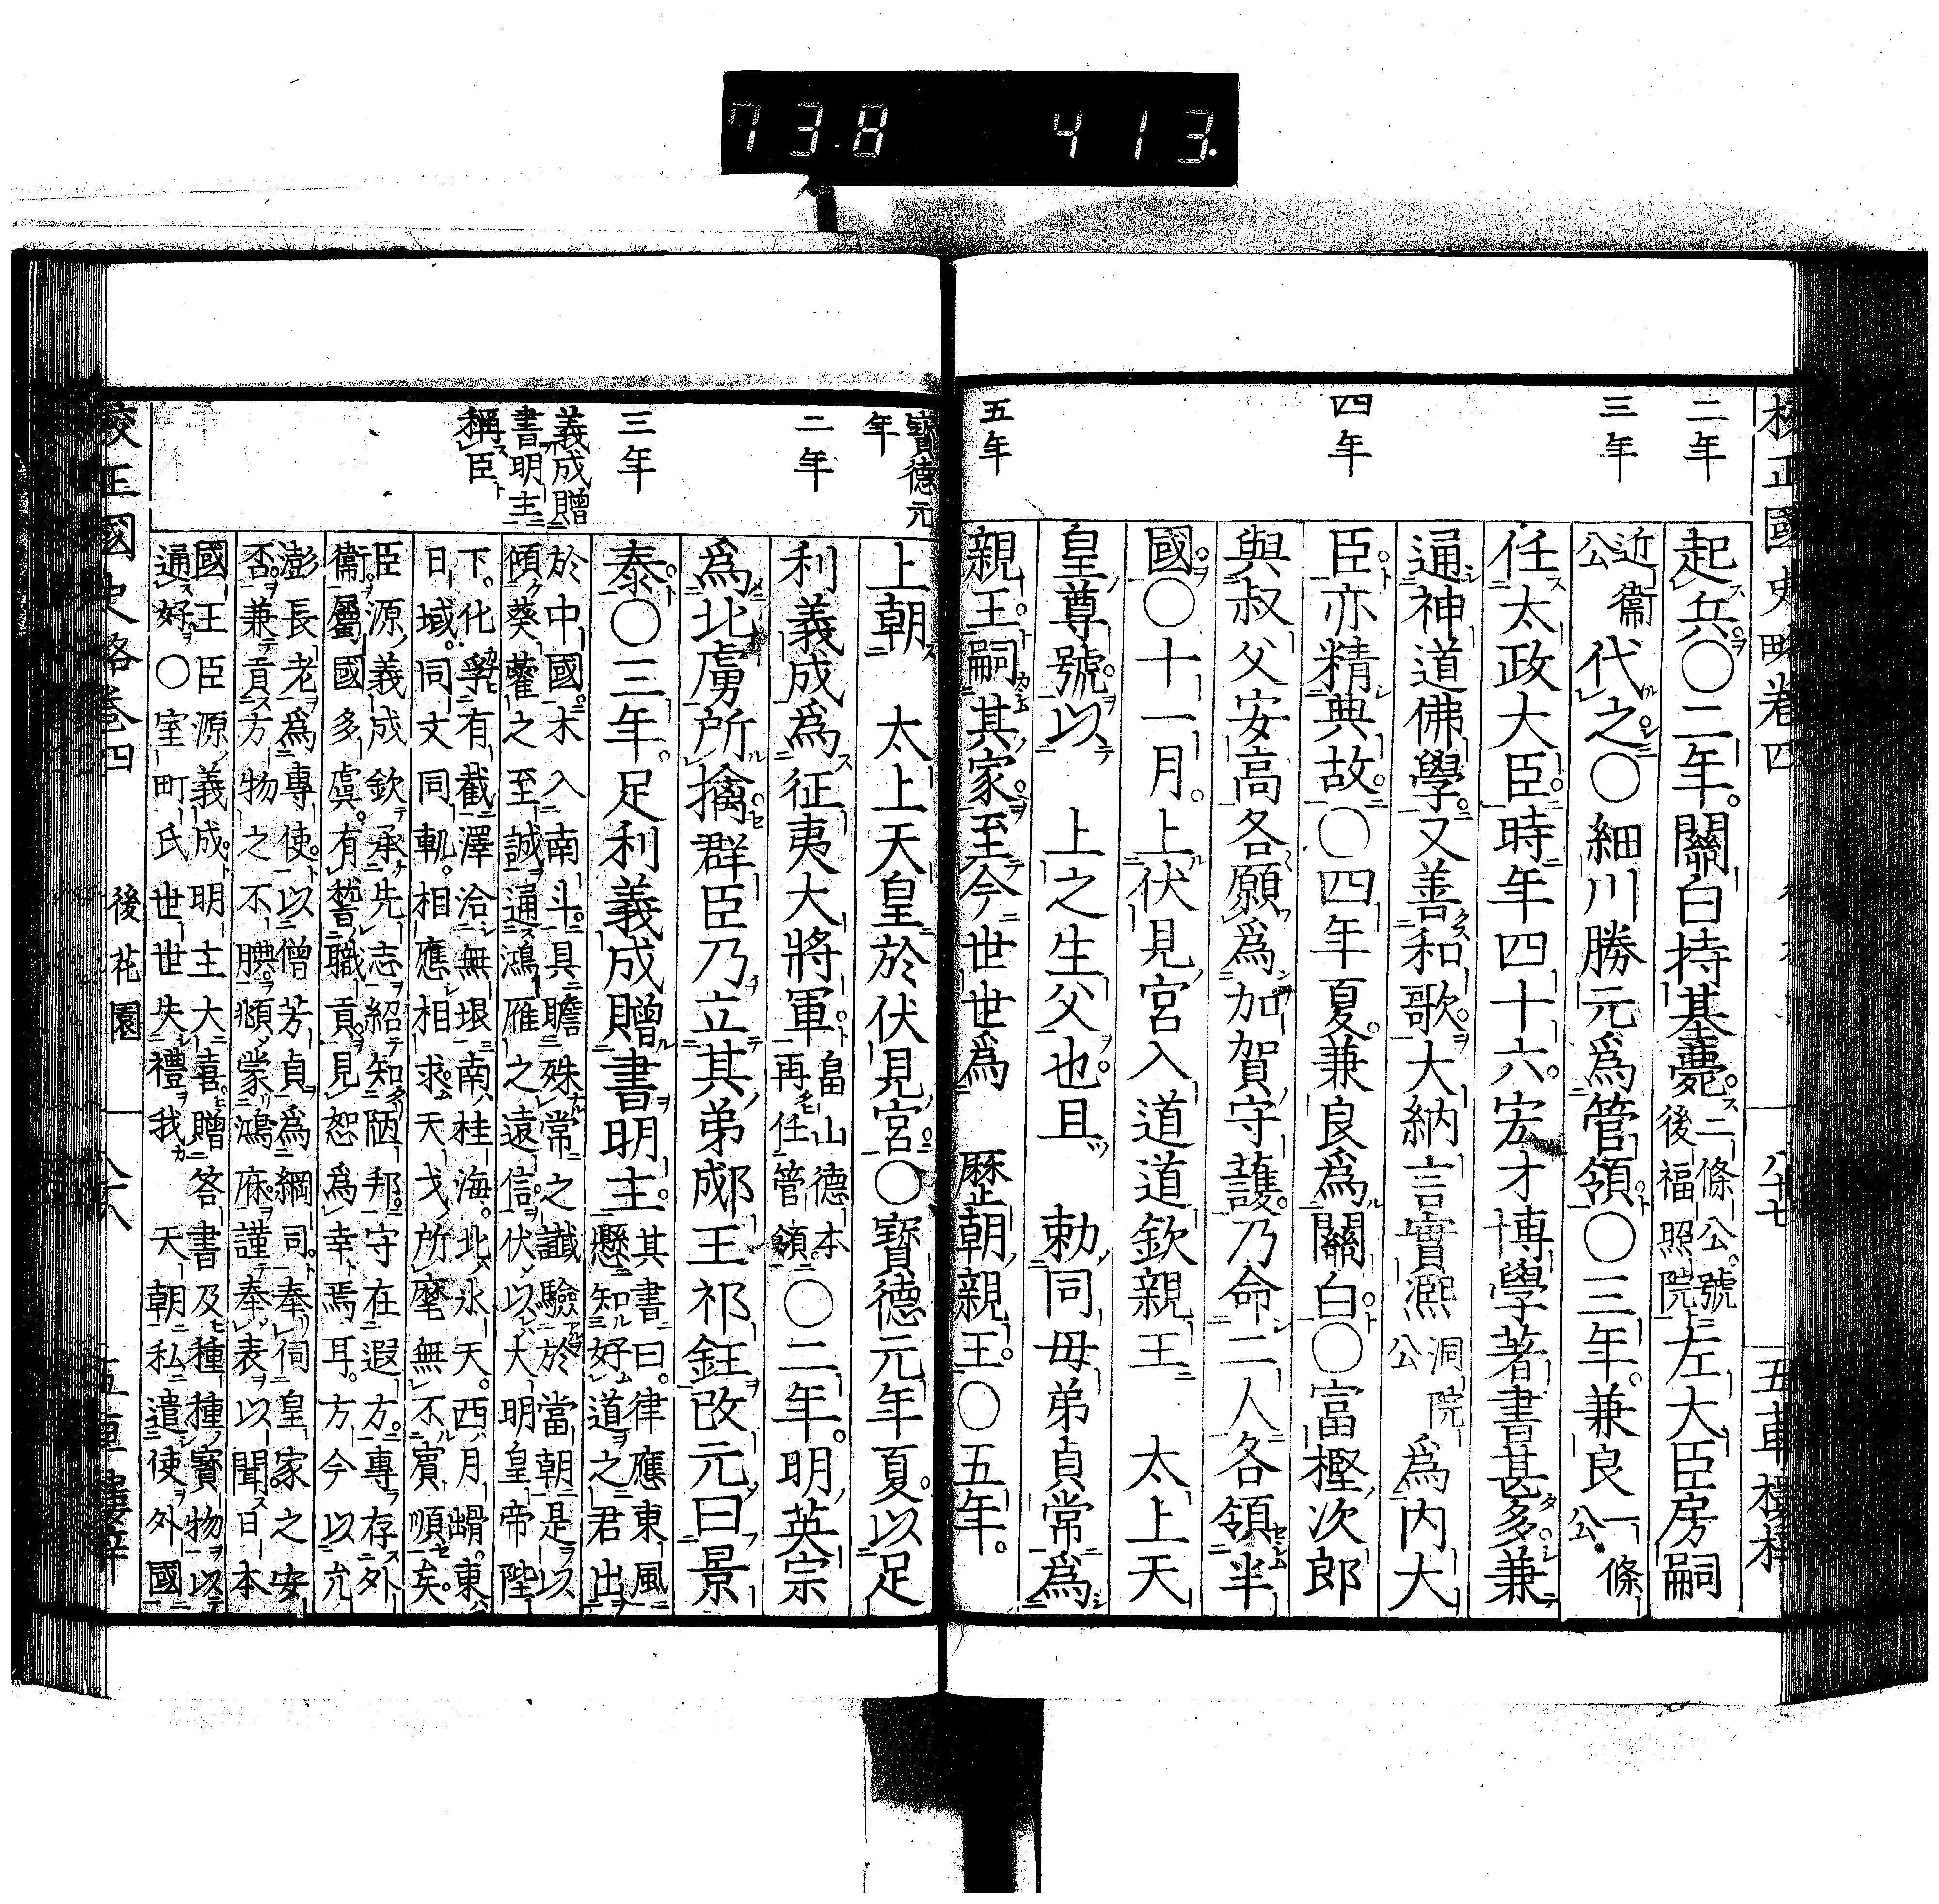 73.8 413.
校正國史略卷四
八十七
五車樓梓
二年
三年
四年
五年
起兵○二年。關白持基薨。二條公。號後福照院左大臣房嗣
近衞公代之○細川勝元爲管領○三年。兼良一條公
任太政大臣。時年四十六。宏才博學著書甚多兼
通神道佛學。又善和歌。大納言實凞洞院公爲内大
臣。亦精典故。○四年夏。兼良爲關白○富樫次郎
與叔父安高各願爲加賀守護。乃命二人各領半
國。○十一月。上伏見宮入道道欽親王 太上天
皇尊號。以 上之生父也。且 勅同母弟貞常爲
親王。嗣其家。至今世世爲 歴朝親王。○五年。
寶德元年
二年
三年
義成贈書明主稱臣
上朝 太上天皇於伏見宮。○寶德元年夏。以足
利義成爲征夷大將軍。畠山德本再任管領。○二年。明英宗
爲北虜所擒。群臣乃立其弟郕王祁鈺改元曰景
泰。○三年。足利義成贈書明主。其書曰。律應東風懸知好道之君出
於中國。木入南斗。具瞻殊常之讖驗於當朝。是以
傾葵藿之至誠通鴻雁之遠信。伏以大明皇帝陛
下。化孚有截澤洽無垠南桂海。北氷天。西月㟙。東
日域。同文同軌。相應相求。天戈所麾無不賓順矣。
臣源義成欽承先志紹知陋邦。守在遐方。專存外
衞。屬國多虞。有愆職貢。見恕爲幸焉耳。方今以允
澎長老爲專使。以僧芳貞爲綱司。奉伺皇家之安
否。兼貢方物之不腆。頫蒙鴻庥。謹奉表以聞日本
國王臣源義成。明主大喜。贈答書及種種寶物以
通好○室町氏世世失禮我 天朝私遣使外國
校正國史略卷四
後花園
五車樓梓